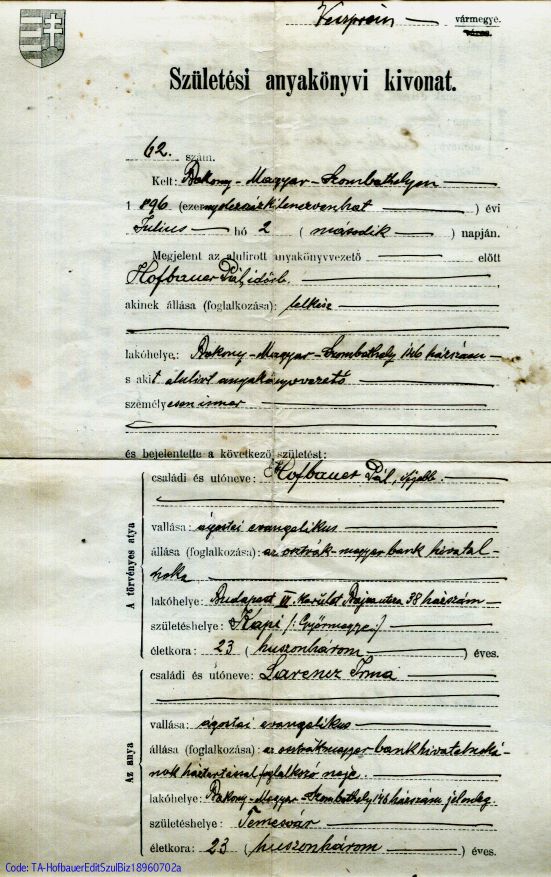 Veszprém vármegye.
város.
Születési anyakönyvi kivonat.
62. szám.
Kelt: Bakony-Magyar-Szombathelyen
1896 (ezernyolczszázkilenczvenhat) évi
Július hó 2 (második) napján.
Megjelent az alulirott anyakönyvvezető előtt
Hofbauer Pál, idősb.
akinek állása (foglalkozása): lelkész
lakóhelye: Bakony-Magyar-Szombathely 146 házszám
s akit alulirt anyakönyvvezető
személyesen ismer
és bejelentette a következő születést:
A törvényes atya
családi és utóneve: Hofbauer Pál, ifjabb.
vallása: ágostai evangelikus
állása (foglalkozása): az osztrák-magyar bank hivatal-
noka
lakóhelye: Budapest VI. kerület Bajza utcza 38 házszám
születéshelye: Kapi /: Győrmegye:/
életkora: 23 (huszonhárom) éves.
Az anya
családi és utóneve: Larencz Irma
vallása: ágostai evangelikus
állása (foglalkozása): az osztrák magyar bank hivatalnoká-
nak háztartással foglalkozó neje.
lakóhelye: Bakony-Magyar-Szombathely 146 házszám jelenleg.
születéshelye: Temesvár
életkora: 23 (huszonhárom) éves.
Code: TA-HofbauerEditSzulBiz18960702a